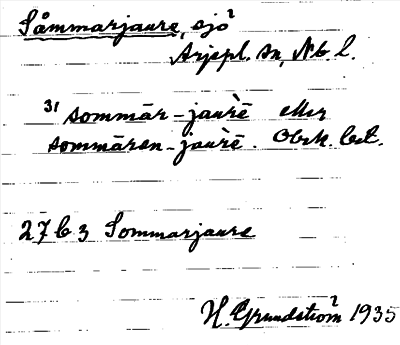 Såmmarjaure, sjö
Arjepl. sn, Nb. l.
31 sommār-jaurḕ eller
sommāren-jaurḕ. Obek. bet.
27 b 3 Sommarjaure
H. Grundström 1935